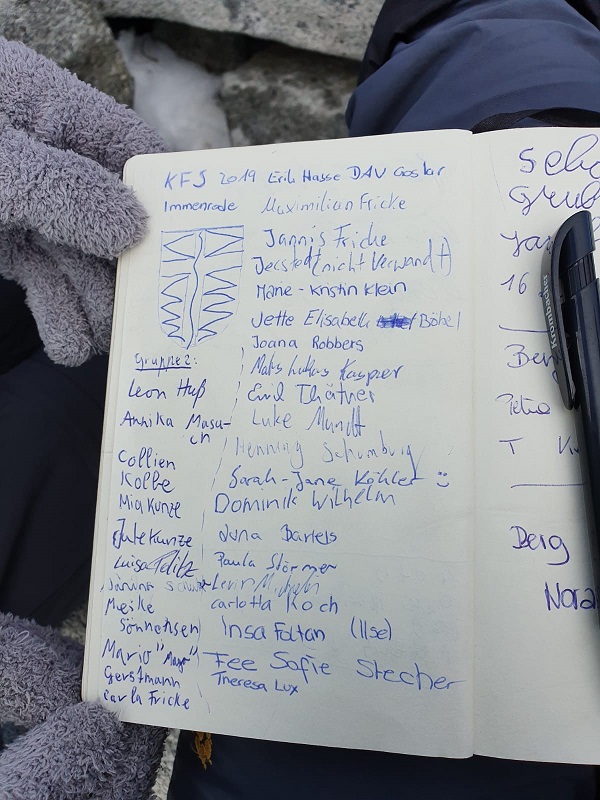 KFS 2019 Erik Hasse DAV Goslar
Immenrode Maximilian Fricke
Jannis Fricke
Jerstedt (nicht Verwandt)
Kristin Klein
Jette Elisabeth Böbel
Joana Robbers
Lukas Kasper
Emil Thätner
Luke Mundt
Henning Schomburg
Sarah-Jane Köhler
Dominik Wilhelm
Juna Bartels
Paula Störmer
Carlotta Koch
Insa Foltan (Ilse)
Fee Sofie Stecher
Theresa Lux
Gruppe 2:
Leon Huß
Annika Masu-
ch
Collien
Kolbe
Mia Kunze
Jule Kunze
Luisa
Meike
Sönnchsen
Mario
Gerstmann
Carla Fricke
16
Berg
T
Berg
Nora
Krombacher